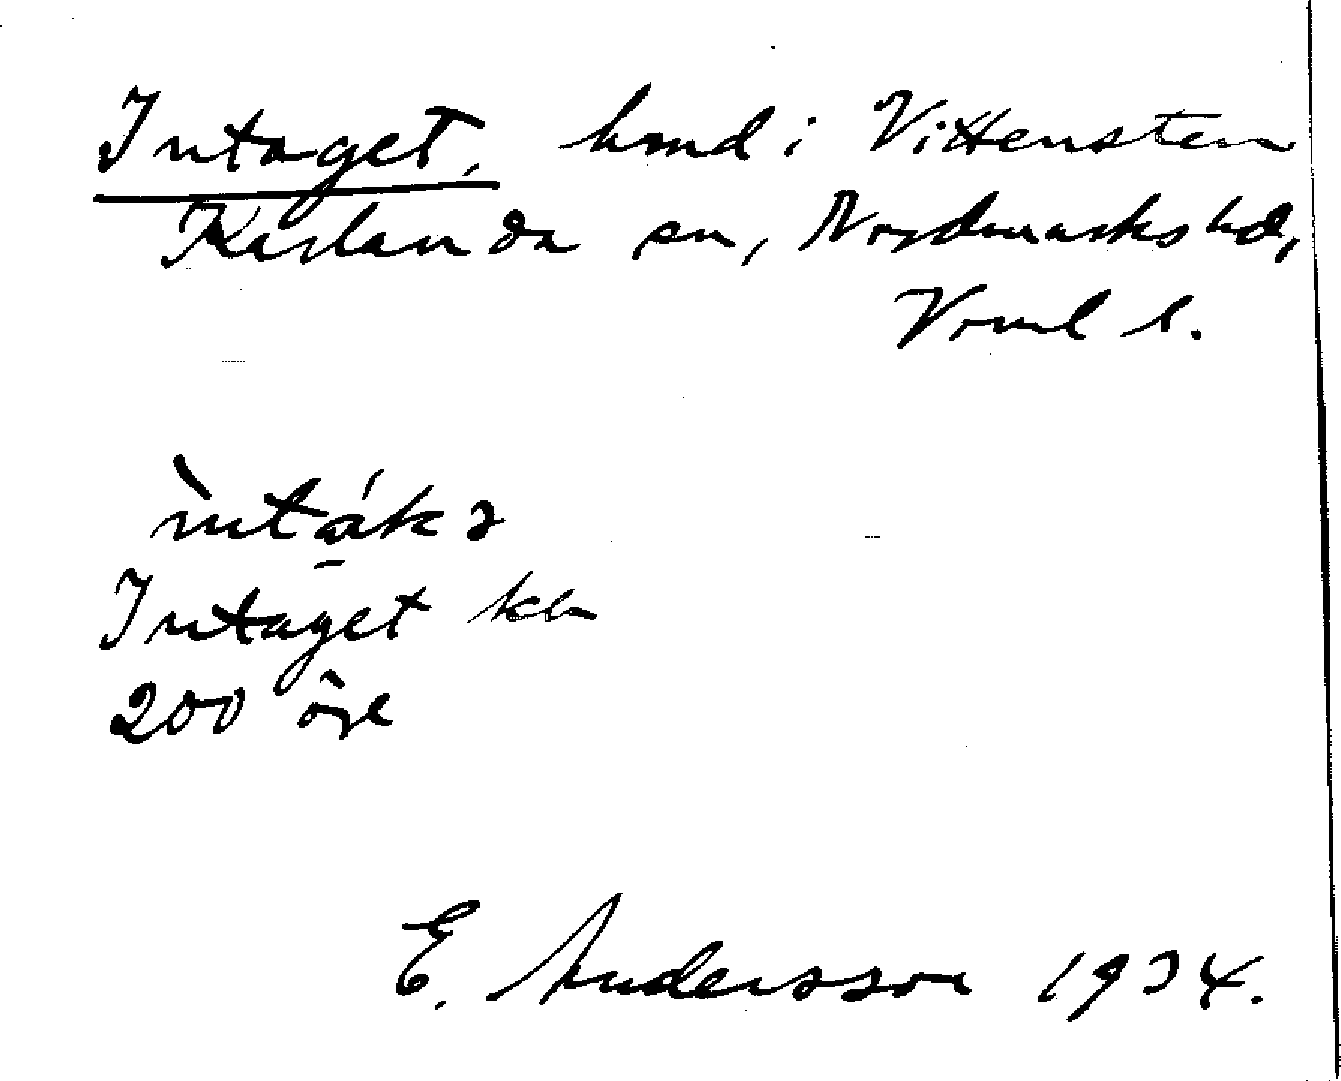 Intaget, hmd i Vittensten
Karlanda sn, Nordmarks hd,
Vrml l.
ìnták ə
Intaget
200 öre
E. Andersson 1934.